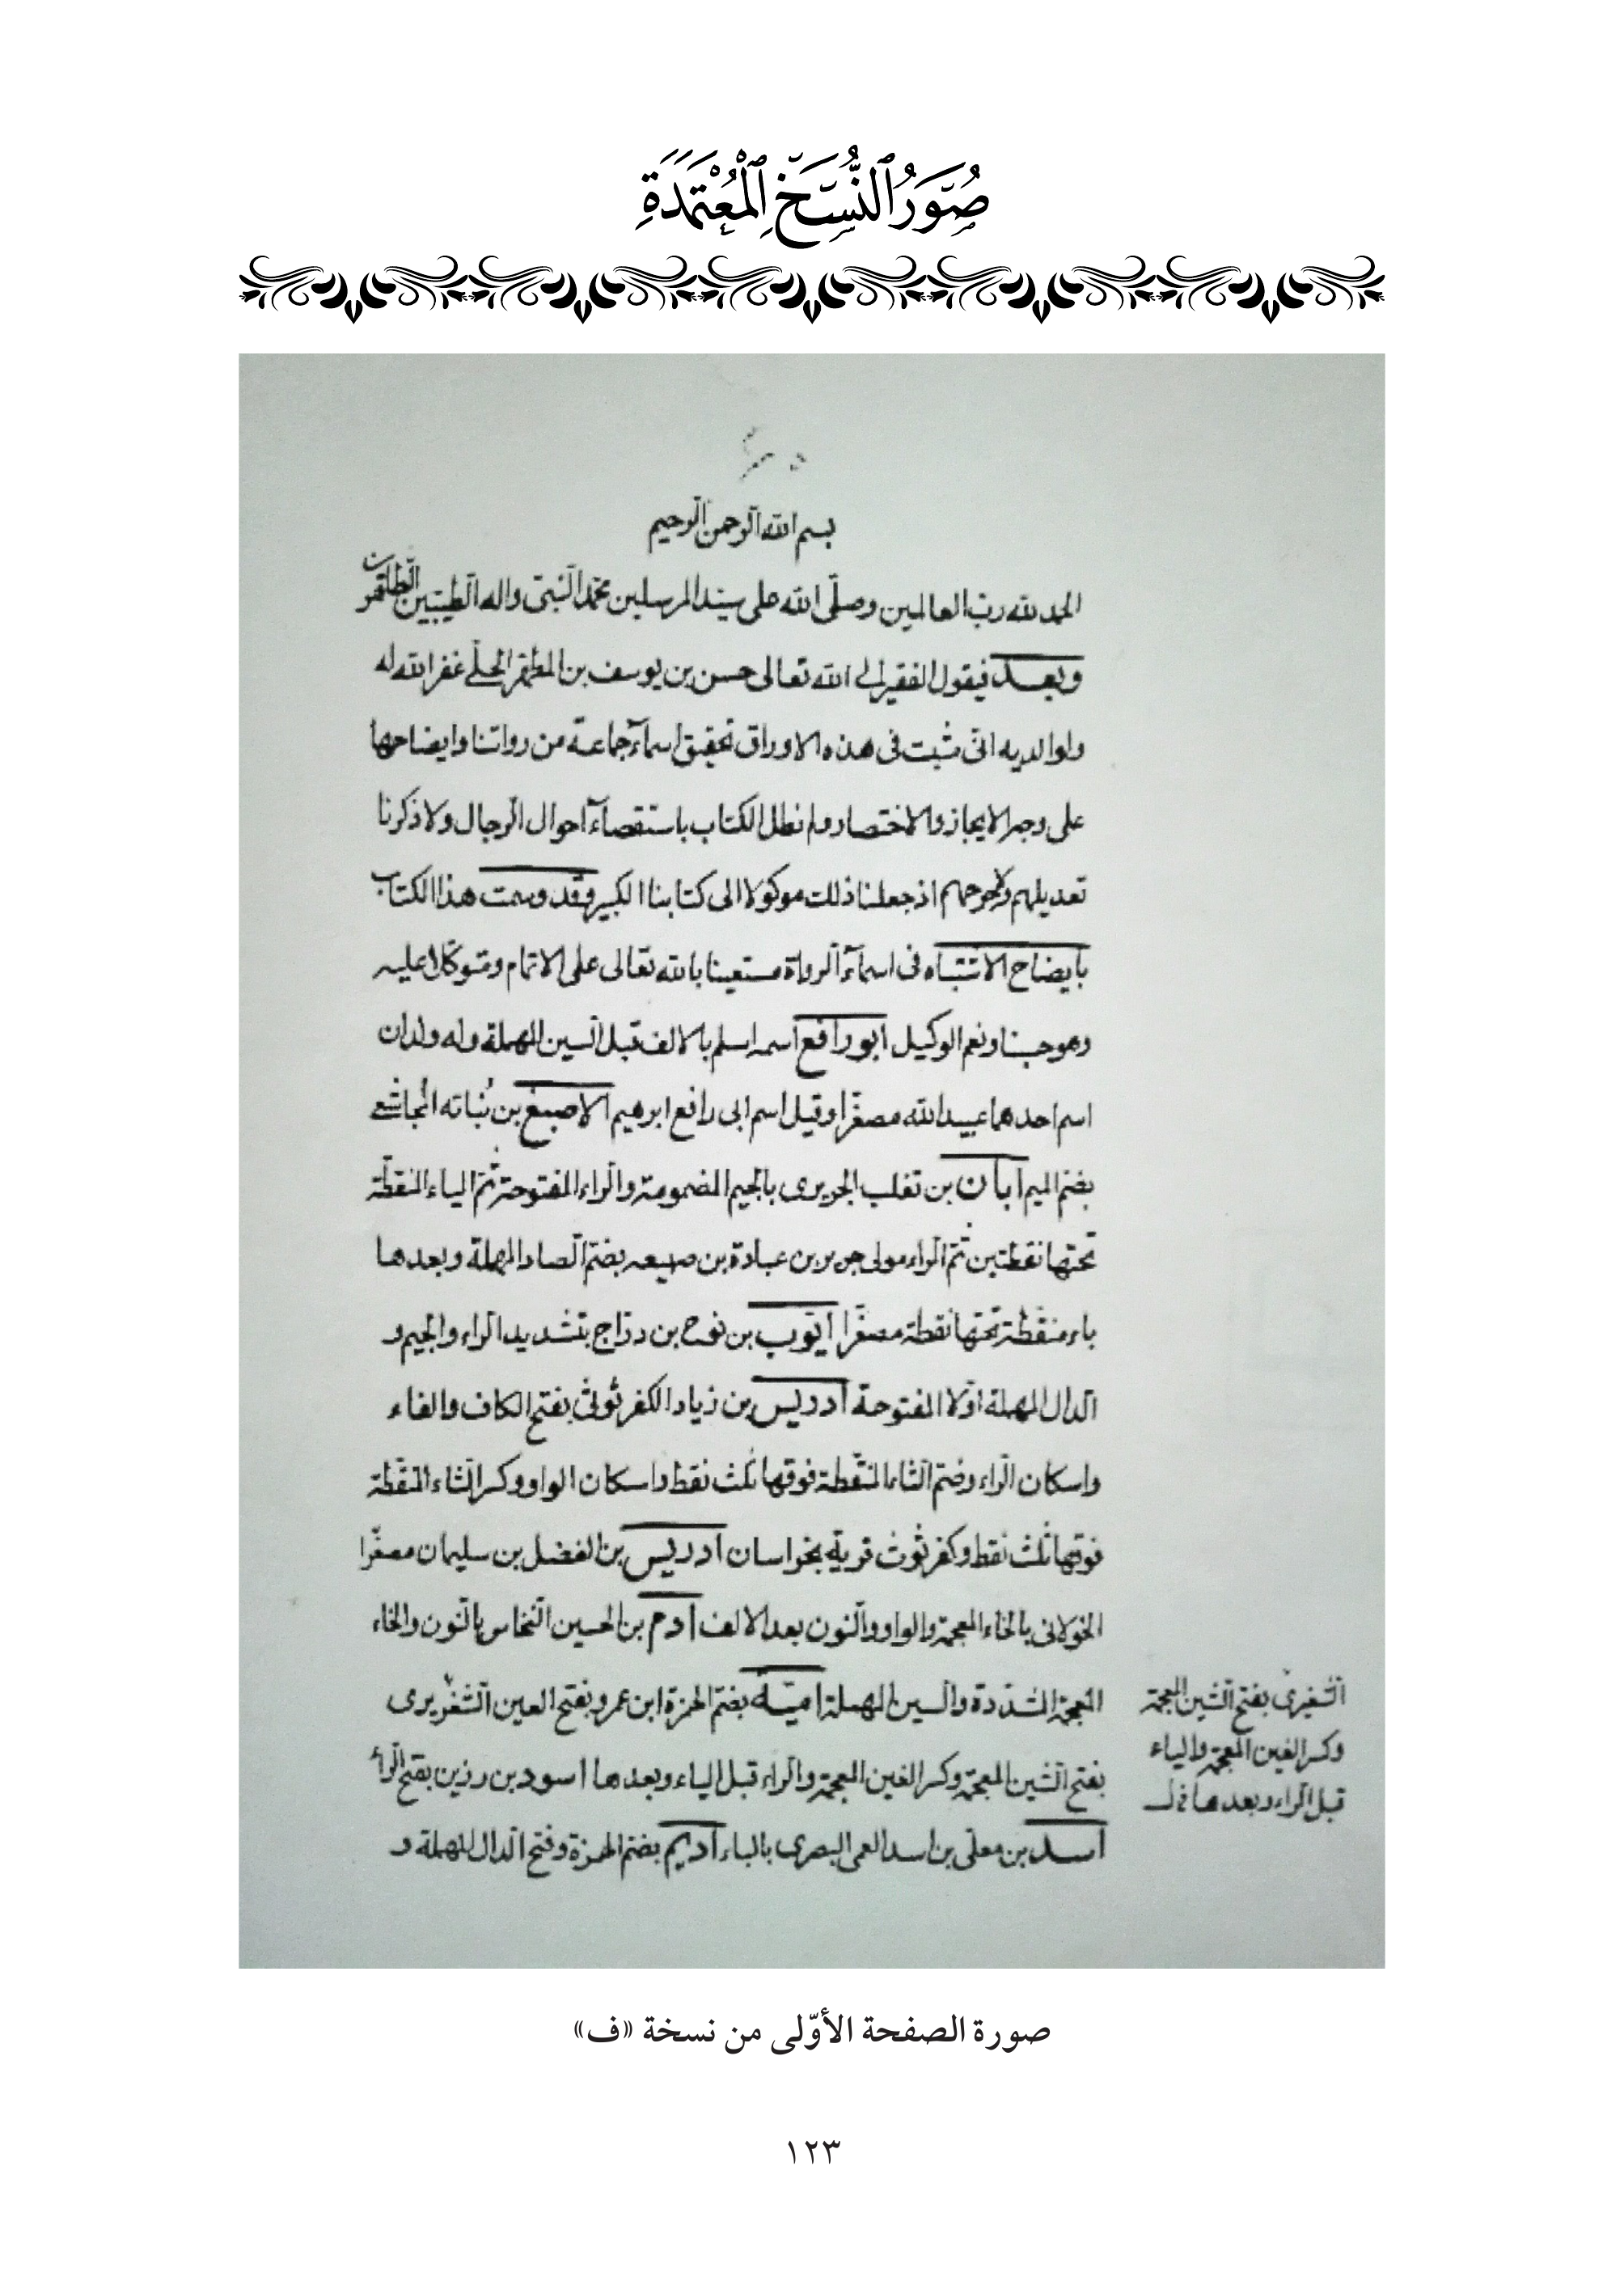 صُوَرُ ٱلنُّسَخِ ٱلْمُعْتَمَدَةِ
بسم الله الرحمن الرحيم
الحمد لله رب العالمين وصلّى الله على سيّد المرسلين محمّد النبيّ واله الطيبين الطاهرين
وبعد فيقول الفقير الى الله تعالى حسن بن يوسف بن المطهر الحلّي غفر الله له
ولوالديه انّى مثبت فى هذه الاوراق تحقيق اسمآء جماعة من رواتنا وايضاحها
على وجه الايجاز والاختصار ولم نطل الكتاب باستقصآء احوال الرجال ولا ذكرنا
تعديلهم وجرحهم اذ جعلنا ذلك موكولا الى كتابنا الكبير وقد وسمت هذا الكتاب
بايضاح الاشتباه فى اسمآء الرواة مستعينا بالله تعالى على الاتمام ومتوكّلا عليه
وهو حسبنا ونعم الوكيل ابو رافع اسمه اسلم بالالف قبل السين المهملة وله ولدان
اسم احدهما عبيد الله مصغّرا وقيل اسم ابى رافع ابرهيم الاصبغ بن نُباته المجاشعى
بضم الميم ابان بن تغلب الجريرى بالجيم المضمومة والراء المفتوحة ثمّ الياء المنقطة
تحتها نقطتين ثمّ الراء مولى جرير بن عبادة بن صبيعه بضمّ الصاد المهملة وبعدها
باء منقطة تحتها نقطة مصغّرا ايّوب بن نوح بن درّاج بتشديد الراء والجيم و
الدال المهملة اوّلا المفتوحة ادريس بن زياد الكفرثوثى بفتح الكاف والفاء
واسكان الراء وضم الثاء المنقّطة فوقها ثلث نقط واسكان الواو وكسر الثاء المنقّطة
فوقها ثلث نقط وكفرثوث قرية بخراسان ادريس بن الفضل بن سليمان مصغّرا
الخولانى بالخاء المعجمة والواو والنون بعد الالف ادم بن الحسين النخاس بالنون والخاء
المعجمة المشدّدة والسين المهملة اميّة بضم الهمزة ابن عمرو بفتح العين الشغريرى
بفتح الشين المعجمة وكسر الغين المعجمة والراء قبل الياء وبعدها اسود بن رزين بفتح الراء
اسد بن معلّى بن اسد العمى البصرى بالباء اديم بضم الهمزة وفتح الدال المهملة و
الشغيرى بفتح الشين المعجمة
وكسر الغين المعجمة والياء
قبل الراء وبعدها
صورة الصفحة الأوّلى من نسخة «ف»
١٢٣